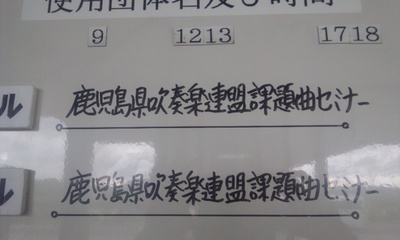 使用団体名及び時間
9 1213 1718
ル 鹿児島県吹奏楽連盟課題曲セミナー
ル 鹿児島県吹奏楽連盟課題曲セミナー